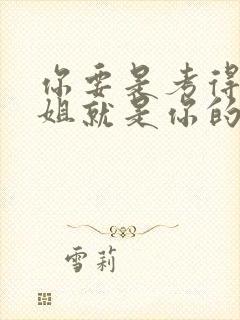 你要是考得
姐就是你的
雪莉